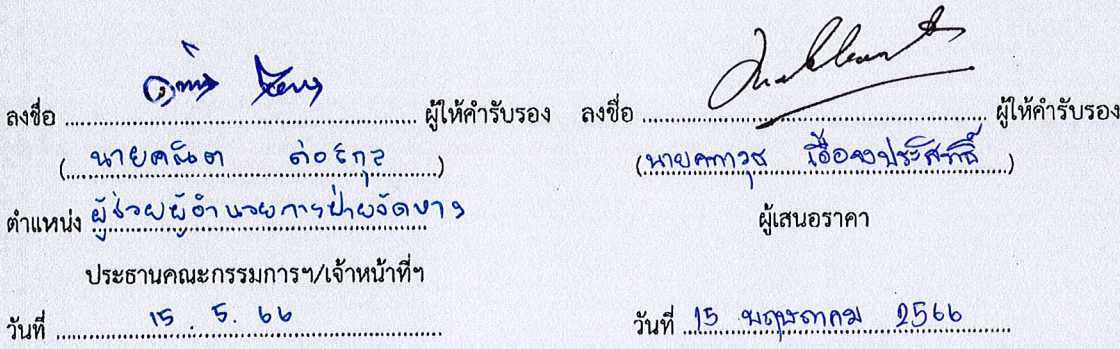 ลงชื่อ ........ ผู้ให้คำรับรอง
( นายคณิต ต่อธีกุล )
ตำแหน่ง ผู้ช่วยผู้อำนวยการฝ่ายจัดหาง
ประธานคณะกรรมการฯ/เจ้าหน้าที่ฯ
วันที่ 15. 5. 66
ลงชื่อ ........ ผู้ให้คำรับรอง
(นายคทาวุธ เอื้องประสิทธิ์)
ผู้เสนอราคา
วันที่ 15 พฤษภาคม 2566